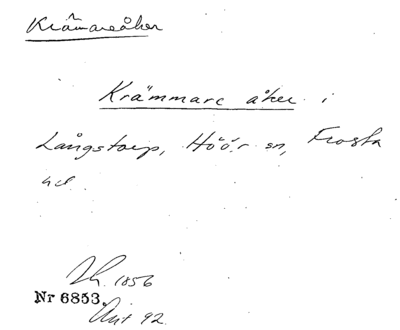 Krämareåker
Krämmare åker i
Långstorp, Höör sn, Frosta
hd.
Lh. 1856
Nr 6853.
Avit 92.